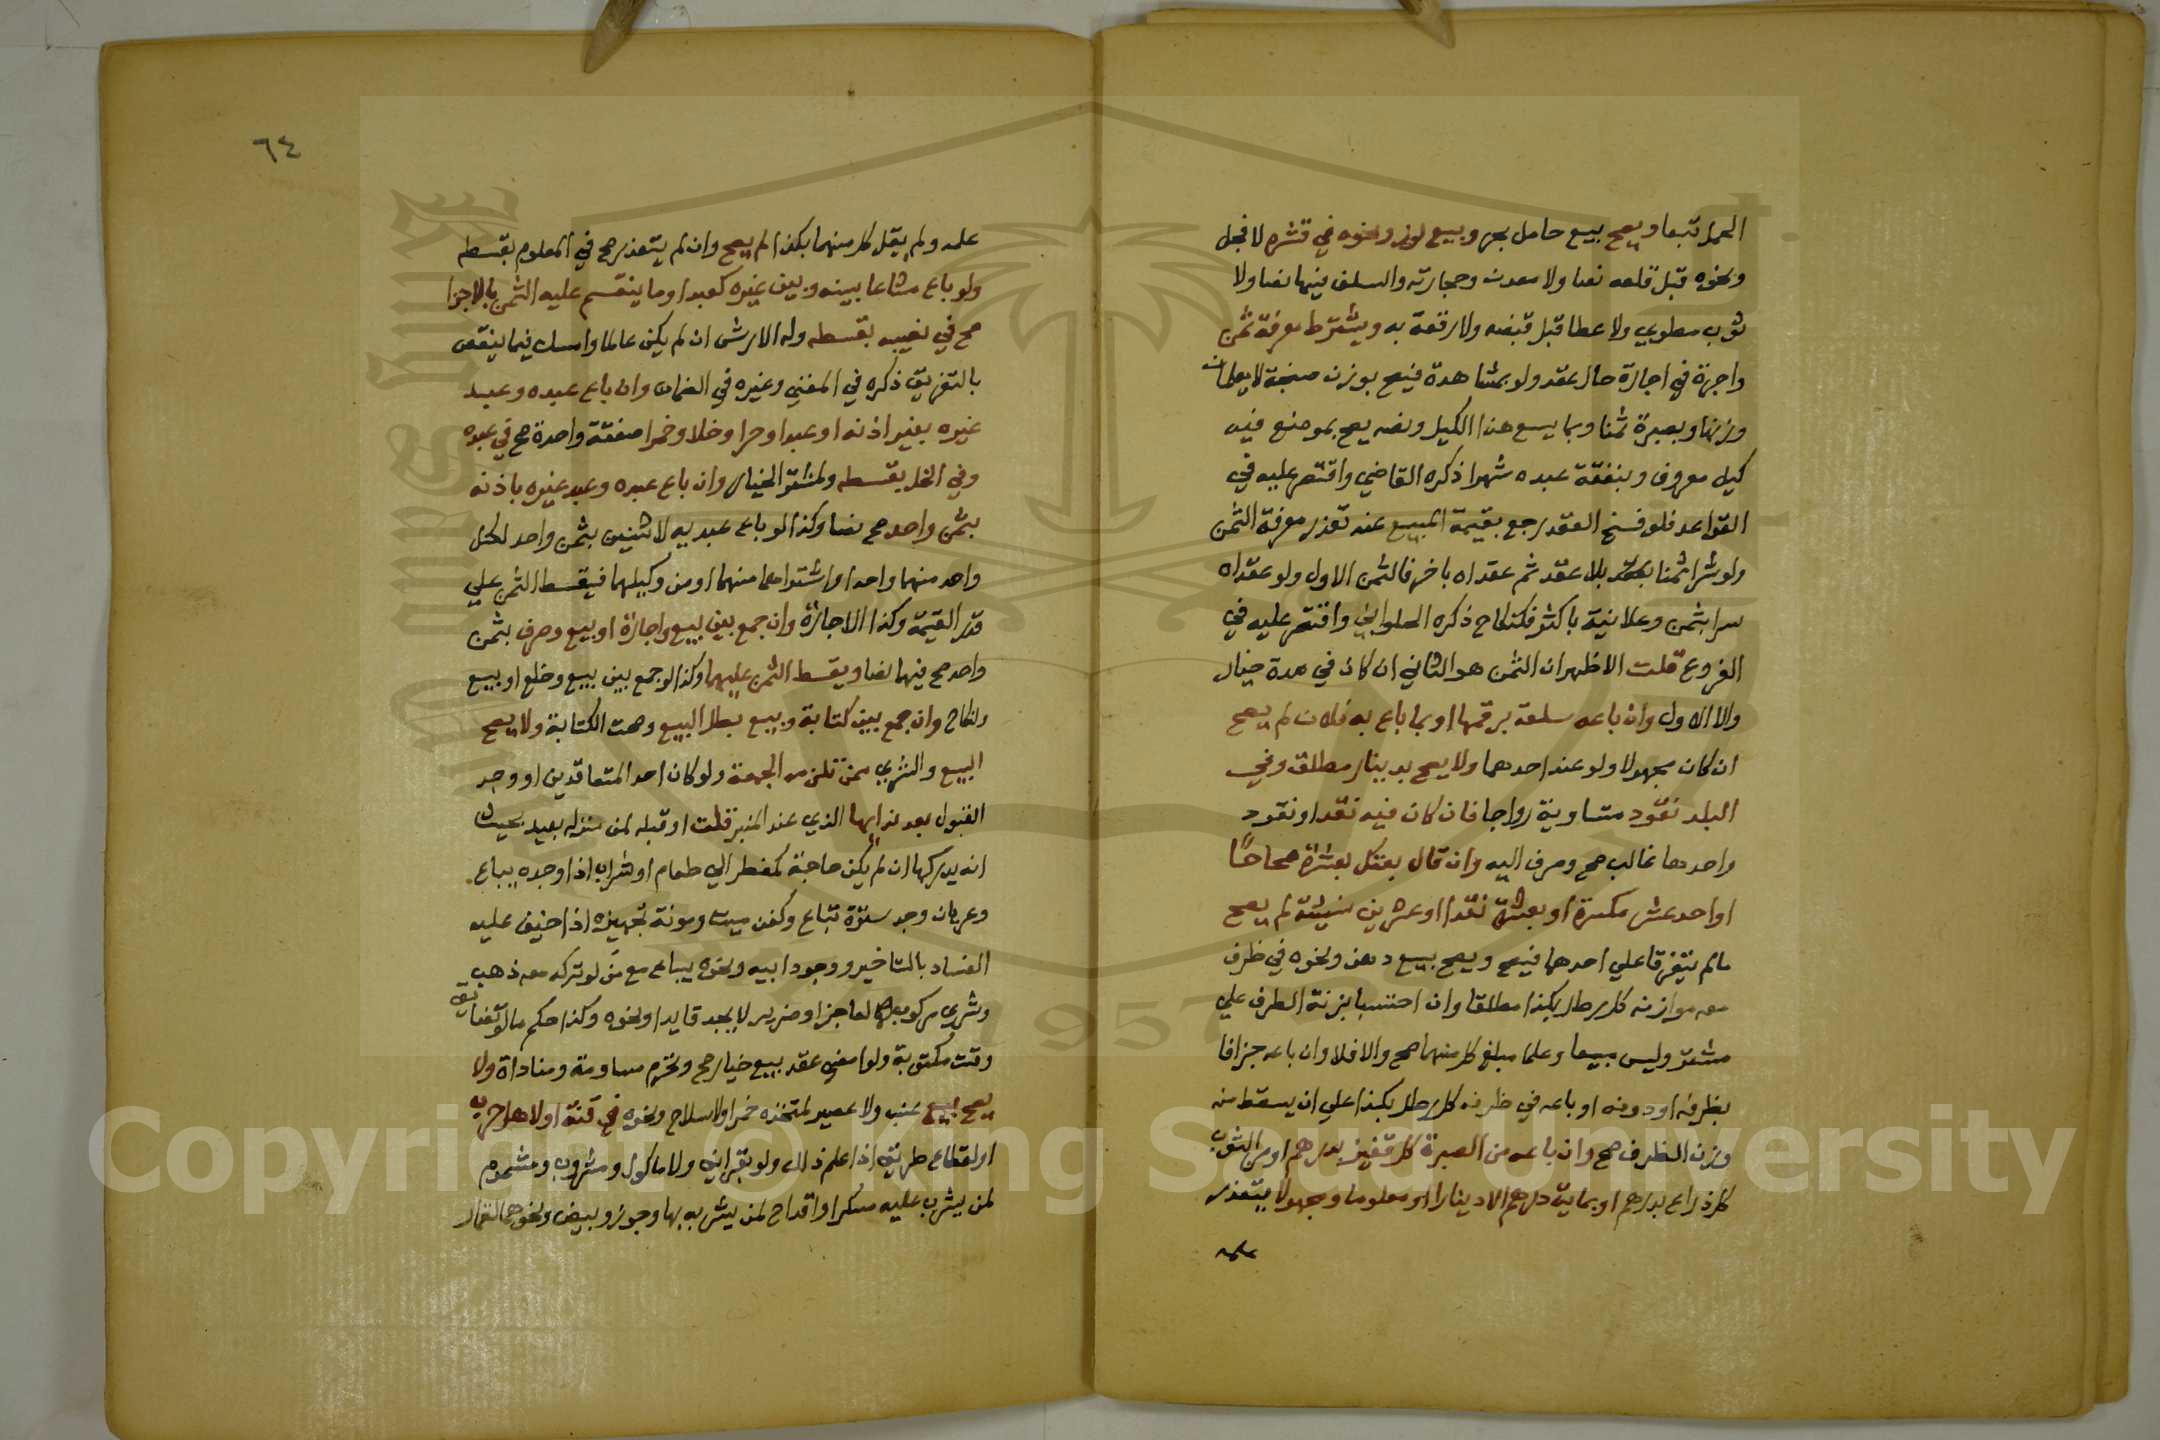 الحمل تبعا ويصح بيع حامل بحر وبيع لوز ونحوه في قشره لا فجل
ونحوه قبل قلعه نصا ولا معدن وحجارته والسلف فيها نصا ولا
ثوب مطوي ولا عطا قبل قبضه ولا رقعة به ويشترط معرفة ثمن
واجرة في اجارة حال عقد ولو بمشاهدة فيصح بوزن صنجة لا يعلمان
وزنها وبصبرة ثمنا وبما يسع هذا الكيل ونصه يصح بموضع فيه
كيل معروف وبنفقة عبده شهرا ذكره القاضي واقتصر عليه في
القواعد فلو فسخ العقد رجع بقيمة المبيع عند تعذر معرفة الثمن
ولو شرا ثمنا بلا عقد ثم عقداه باخر فالثمن الاول ولو عقداه
سرا بثمن وعلانية باكثر فكنكاح ذكره الحلواني واقتصر عليه في
الفروع قلت الاظهر ان الثمن هو الثاني ان كان في مدة خيار
والا الاول وان باعه سلعة برقمها او بما باع به فلان لم يصح
ان كان مجهولا ولو عند احدهما ولا يصح بدينار مطلق وفي
البلد نقود متساوية رواجا فان كان فيه نقد او نقود
واحدها غالب صح وصرف اليه وان قال بعتك بعشرة صحاحا
او احد عشر مكسرة او بعشرة نقدا او عشرين نسيئة لم يصح
مالم يتفرقا علي احدهما فيصح ويصح بيع دهن ونحوه في ظرف
معه موازنه كل رطل بكذا مطلقا وان احتسبا بزنة الظرف علي
مشتر وليس مبيعا وعلما مبلغ كل منهما صح والا فلا وان باعه جزافا
بظرفه او دونه او باعه في ظرفه كل رطل بكذا علي ان يسقط منه
وزن الظرف صح وان باعه من الصبرة كل قفيز بدرهم او من الثوب
كل ذراع بدرهم او بماية درهم الا دينارا او معلوما ومجهولا يتعذر
علمه
٦٤
علمه ولم يقل كل منهما بكذا لم يصح وان لم يتعذر صح في المعلوم بقسطه
ولو باع مشاعا بينه وبين غيره كعبد او ما ينقسم عليه الثمن بالاجزا
صح في نصيبه بقسطه وله الارش ان لم يكن عالما وامسك فيما ينقص
بالتفريق ذكره في المغني وغيره في الضمان وان باع عبده وعبد
غيره بغير اذنه او عبدا وحرا وخلا وخمرا صفقة واحدة صح في عبده
وفي الخل بقسطه ولمشتر الخيار وان باع عبده وعبد غيره باذنه
بثمن واحد صح نصا وكذا لو باع عبديه لاثنين بثمن واحد لكل
واحد منهما واحدا او اشتراهما منهما او من وكيلهما فيقسط الثمن علي
قدر القيمة وكذا الاجارة وان جمع بين بيع واجارة او بيع وصرف بثمن
واحد صح فيهما نصا ويقسط الثمن عليهما وكذا لو جمع بين بيع وخلع او بيع
ونكاح وان جمع بين كتابة وبيع بطل البيع وصحت الكتابة ولا يصح
البيع والشري ممن تلزمه الجمعة ولو كان احد المتعاقدين او وجد
القبول بعد ندايها الذي عند المنبر قلت او قبله لمن منزله بعيد بحيث
انه يدركها ان لم يكن حاجة كمضطر الي طعام او شراب اذا وجده يباع
وعريان وجد سترة تباع وكفن ميت ومونة تجهيزه اذا خيف عليه
الفساد بالتاخير ووجود ابيه ونحوه يباع مع من لو تركه معه ذهب
وشري مركوب لعاجز او ضرير لا يجد قايدا ونحوه وكذا حكم ما لو تضايق
وقت مكتوبة ولو امضي عقد بيع خيار صح وتحرم مساومة ومناداة ولا
يصح بيع عنب ولا عصير لمتخذه خمرا ولا سلاح ونحوه في فتنة او لاهل حرب
او لقطاع طريق اذا علم ذلك ولو بقراين ولا ماكول ومشروب ومشموم
لمن يشرب عليه مسكرا واقداح لمن يشربه بها وجوز وبيض ونحوهما لقمار